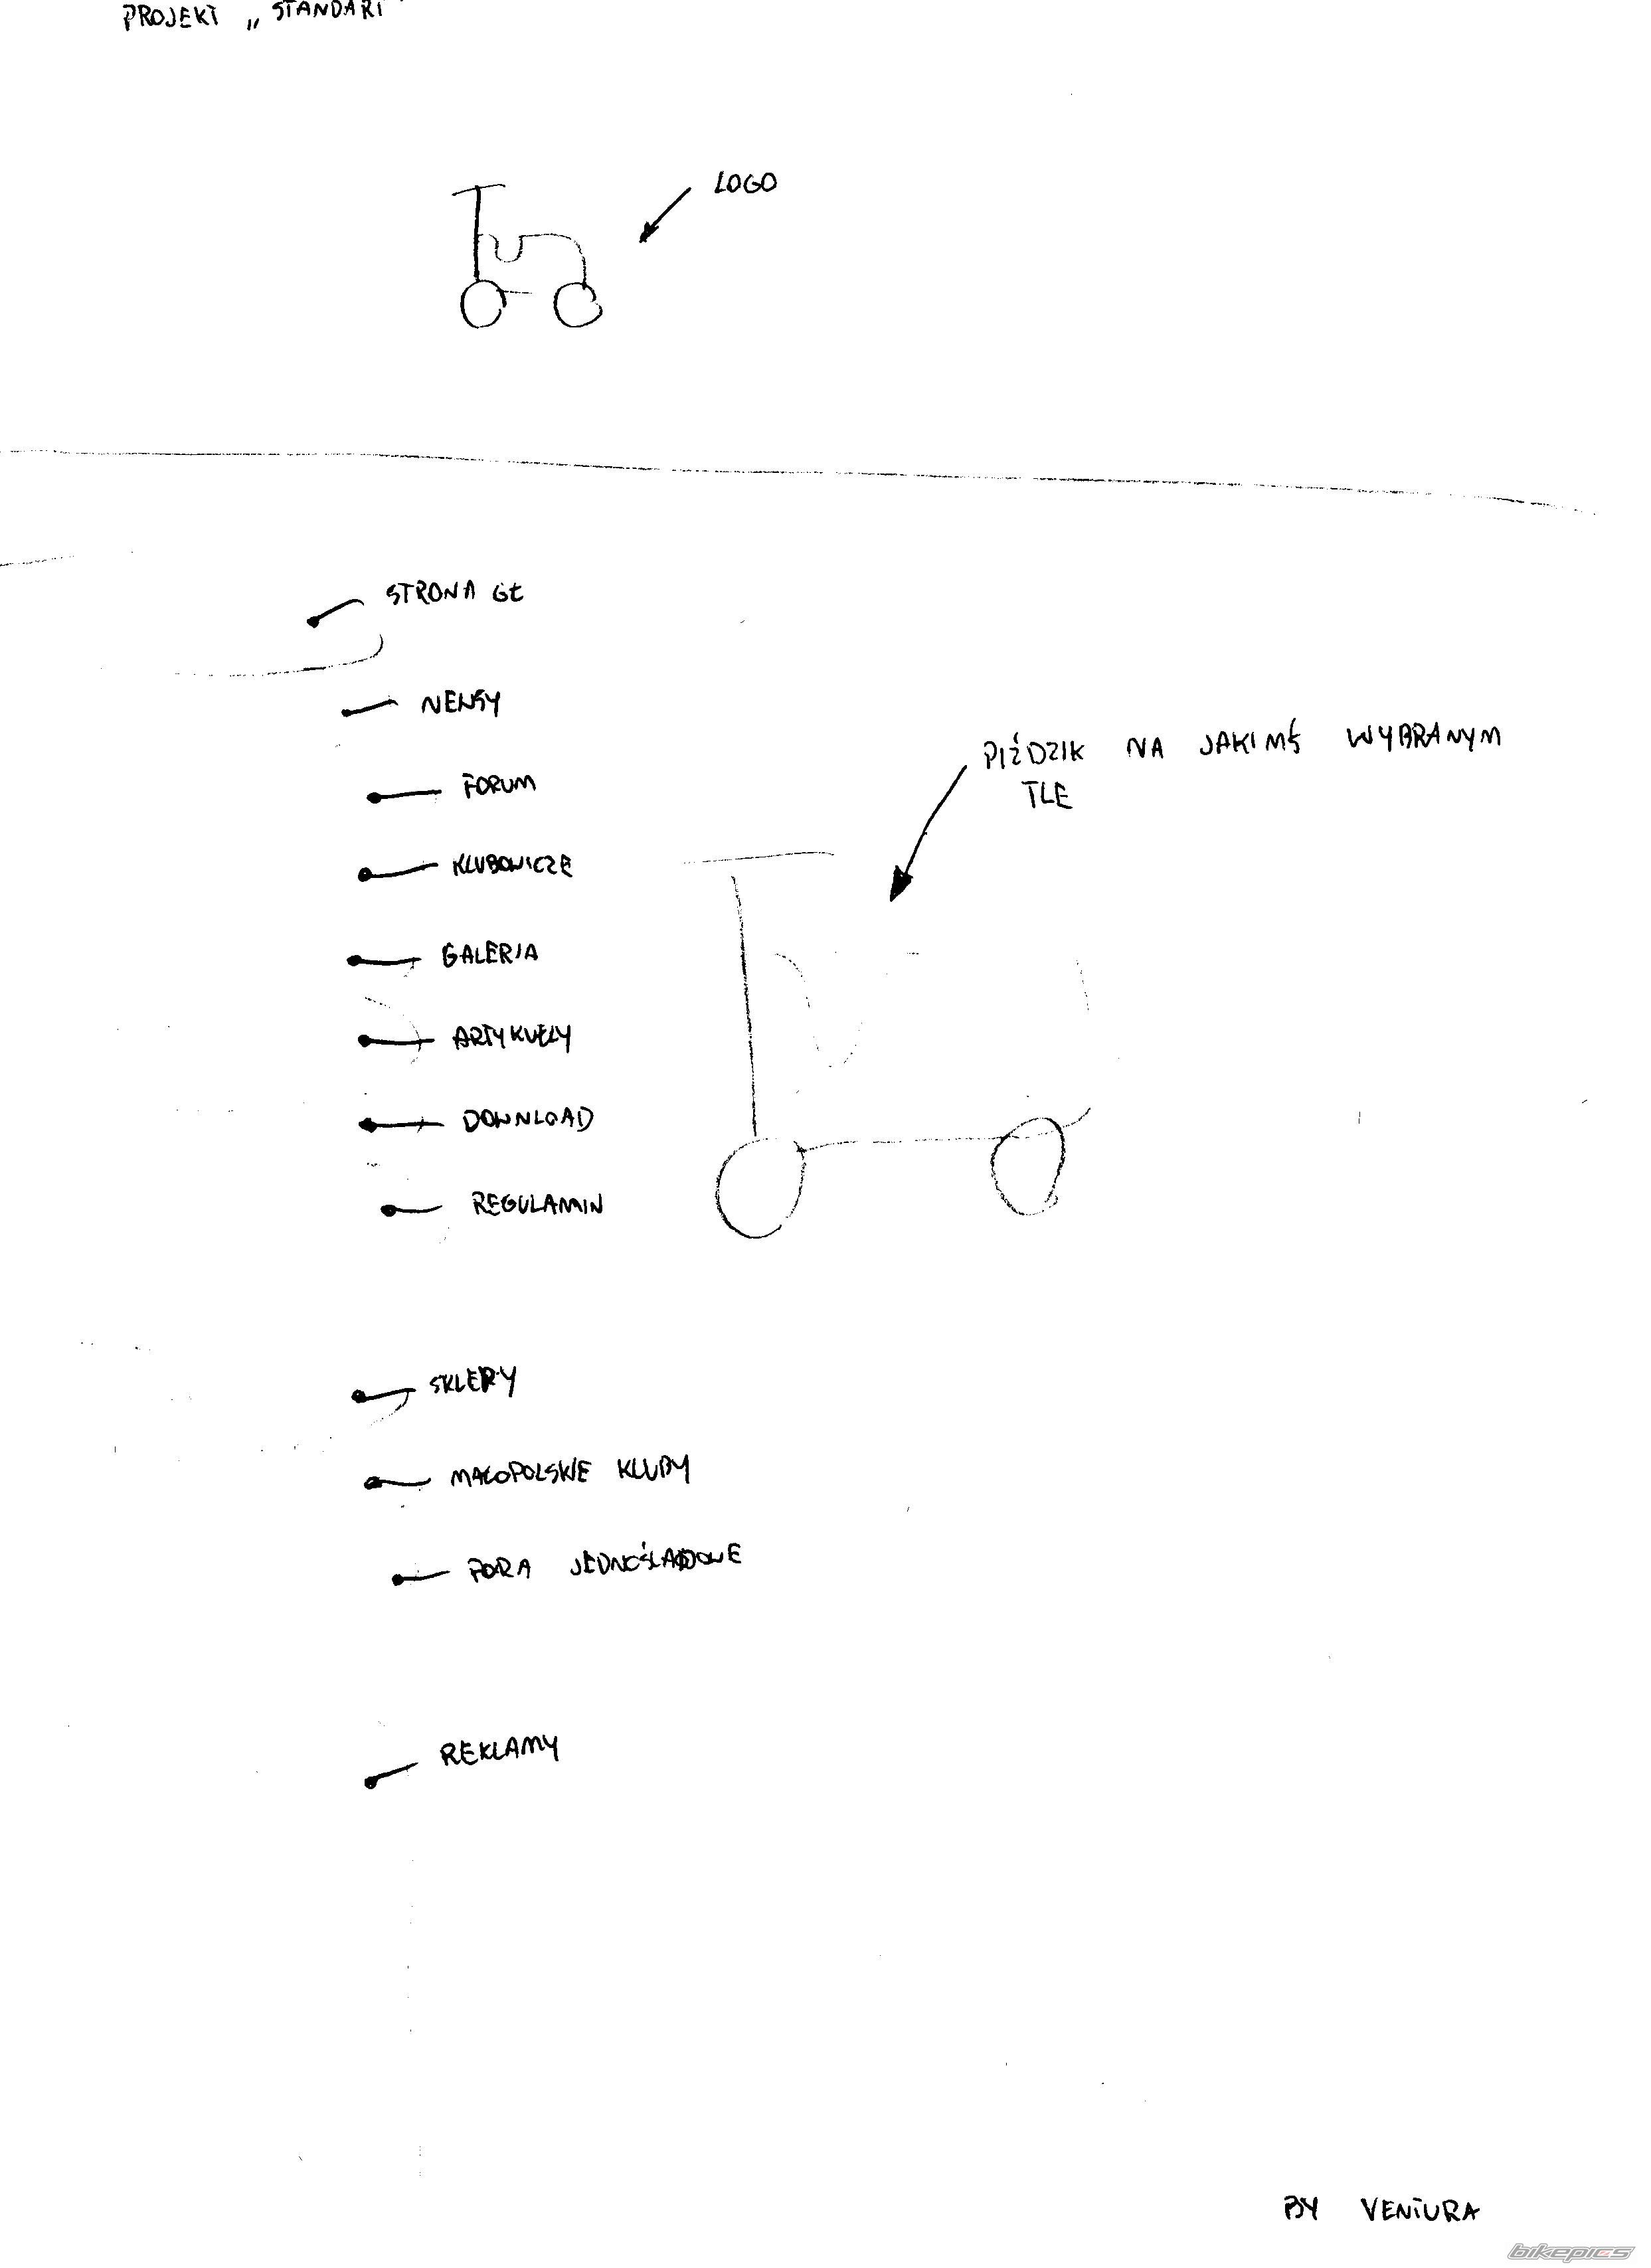 PROJEKT „STANDART"
LOGO
STRONA GŁ
NEWSY
FORUM
KLUBOWICZE
GALERIA
ARTYKUŁY
DOWNLOAD
REGULAMIN
PIŹDZIK NA JAKIMŚ WYBRANYM
TLE
SKLEPY
MAŁOPOLSKIE KLUBY
FORA JEDNOŚLADOWE
REKLAMY
BY VENTURA
bikepics